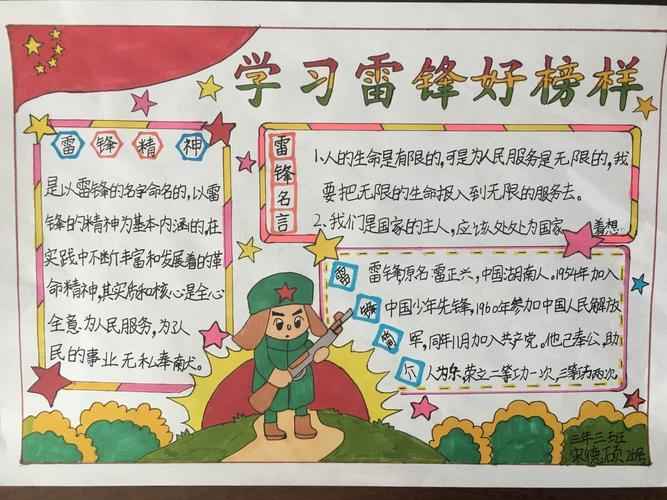 学习雷锋好榜样
雷锋精神
是以雷锋的名字命名的,以雷
锋的精神为基本内涵的,在
实践中不断丰富和发展着的革
命精神,其实质和核心是全心
全意为人民服务,为了人
民的事业无私奉献。
雷锋名言
1.人的生命是有限的,可是为人民服务是无限的,我
要把无限的生命投入到无限的服务去。
2.我们是国家的主人,应该处处为国家 着想
雷锋简介
雷锋原名雷正兴,中国湖南人。1954年加入
中国少年先锋,1960年参加中国人民解放
军,同年11月加入共产党。他己奉公,助
人为乐,荣立二等功一次,三等功两次
三年三班
宋德硕